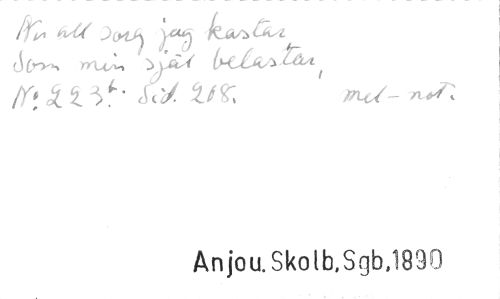 Nu all sorg jag kastar
Som min själ belastar,
No. 223b. Sid. 208. mel-not.
Anjou. Skolb, Sgb, 1890